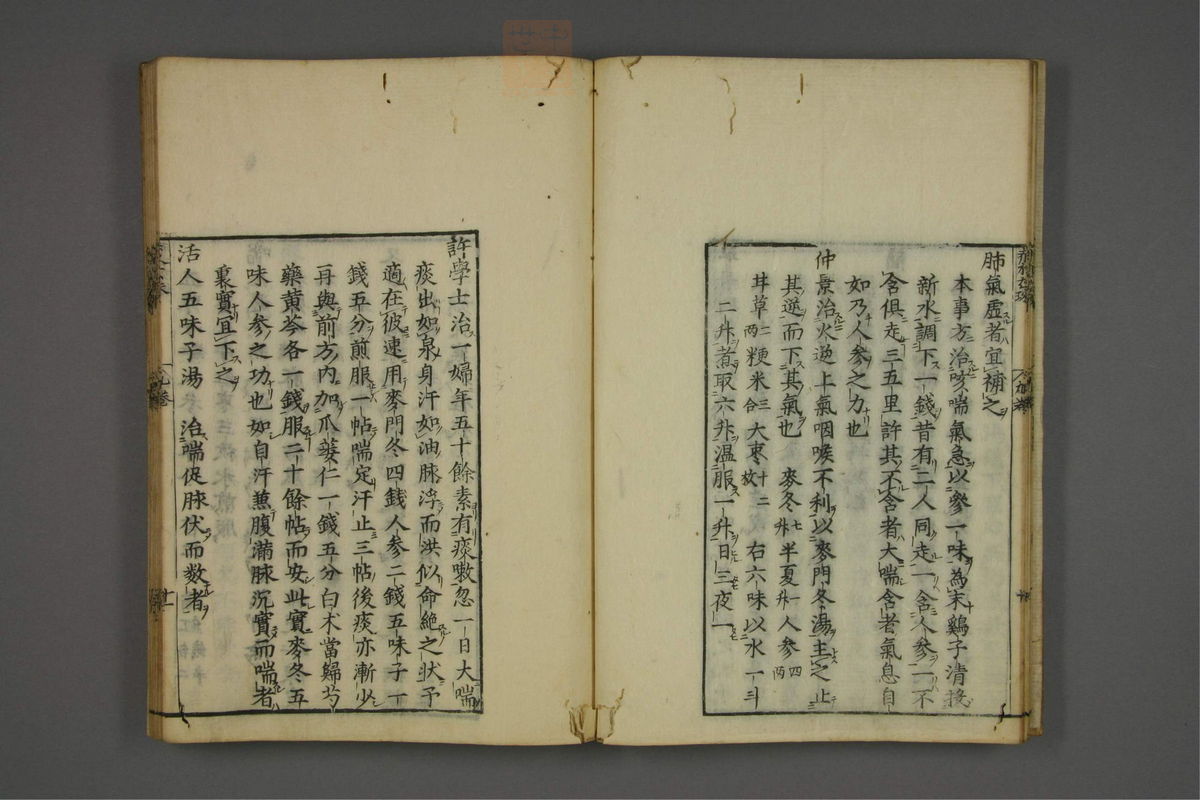 肺氣虛者宜補之
本事方治咳喘氣急以參一味為末鷄子清投
新水調下一錢昔有二人同走一含人參一不
含俱走三五里許其不含者大喘含者氣息自
如乃人參之力也
仲景治火逆上氣咽喉不利以麥門冬湯主之止
其逆而下其氣也 麥冬七升半夏一升人參四兩
甘草二兩粳米三合大枣十二枚 右六味以水一斗
二升煮取六升温服一升日三夜一
許學士治一婦年五十餘素有痰嗽忽一日大喘
痰出如泉身汗如油脉浮而洪似命絶之狀予
適在彼速用麥門冬四錢人參二錢五味子一
錢五分煎服一帖喘定汗止三帖後痰亦漸少
再與前方内加爪蔞仁一錢五分白朮當歸芍
藥黄芩各一錢服二十餘帖而安此實麥冬五
味人參之功也如自汗兼腹滿脉沉實而喘者
裏實宜下之
活人五味子湯 治喘促脉伏而数者